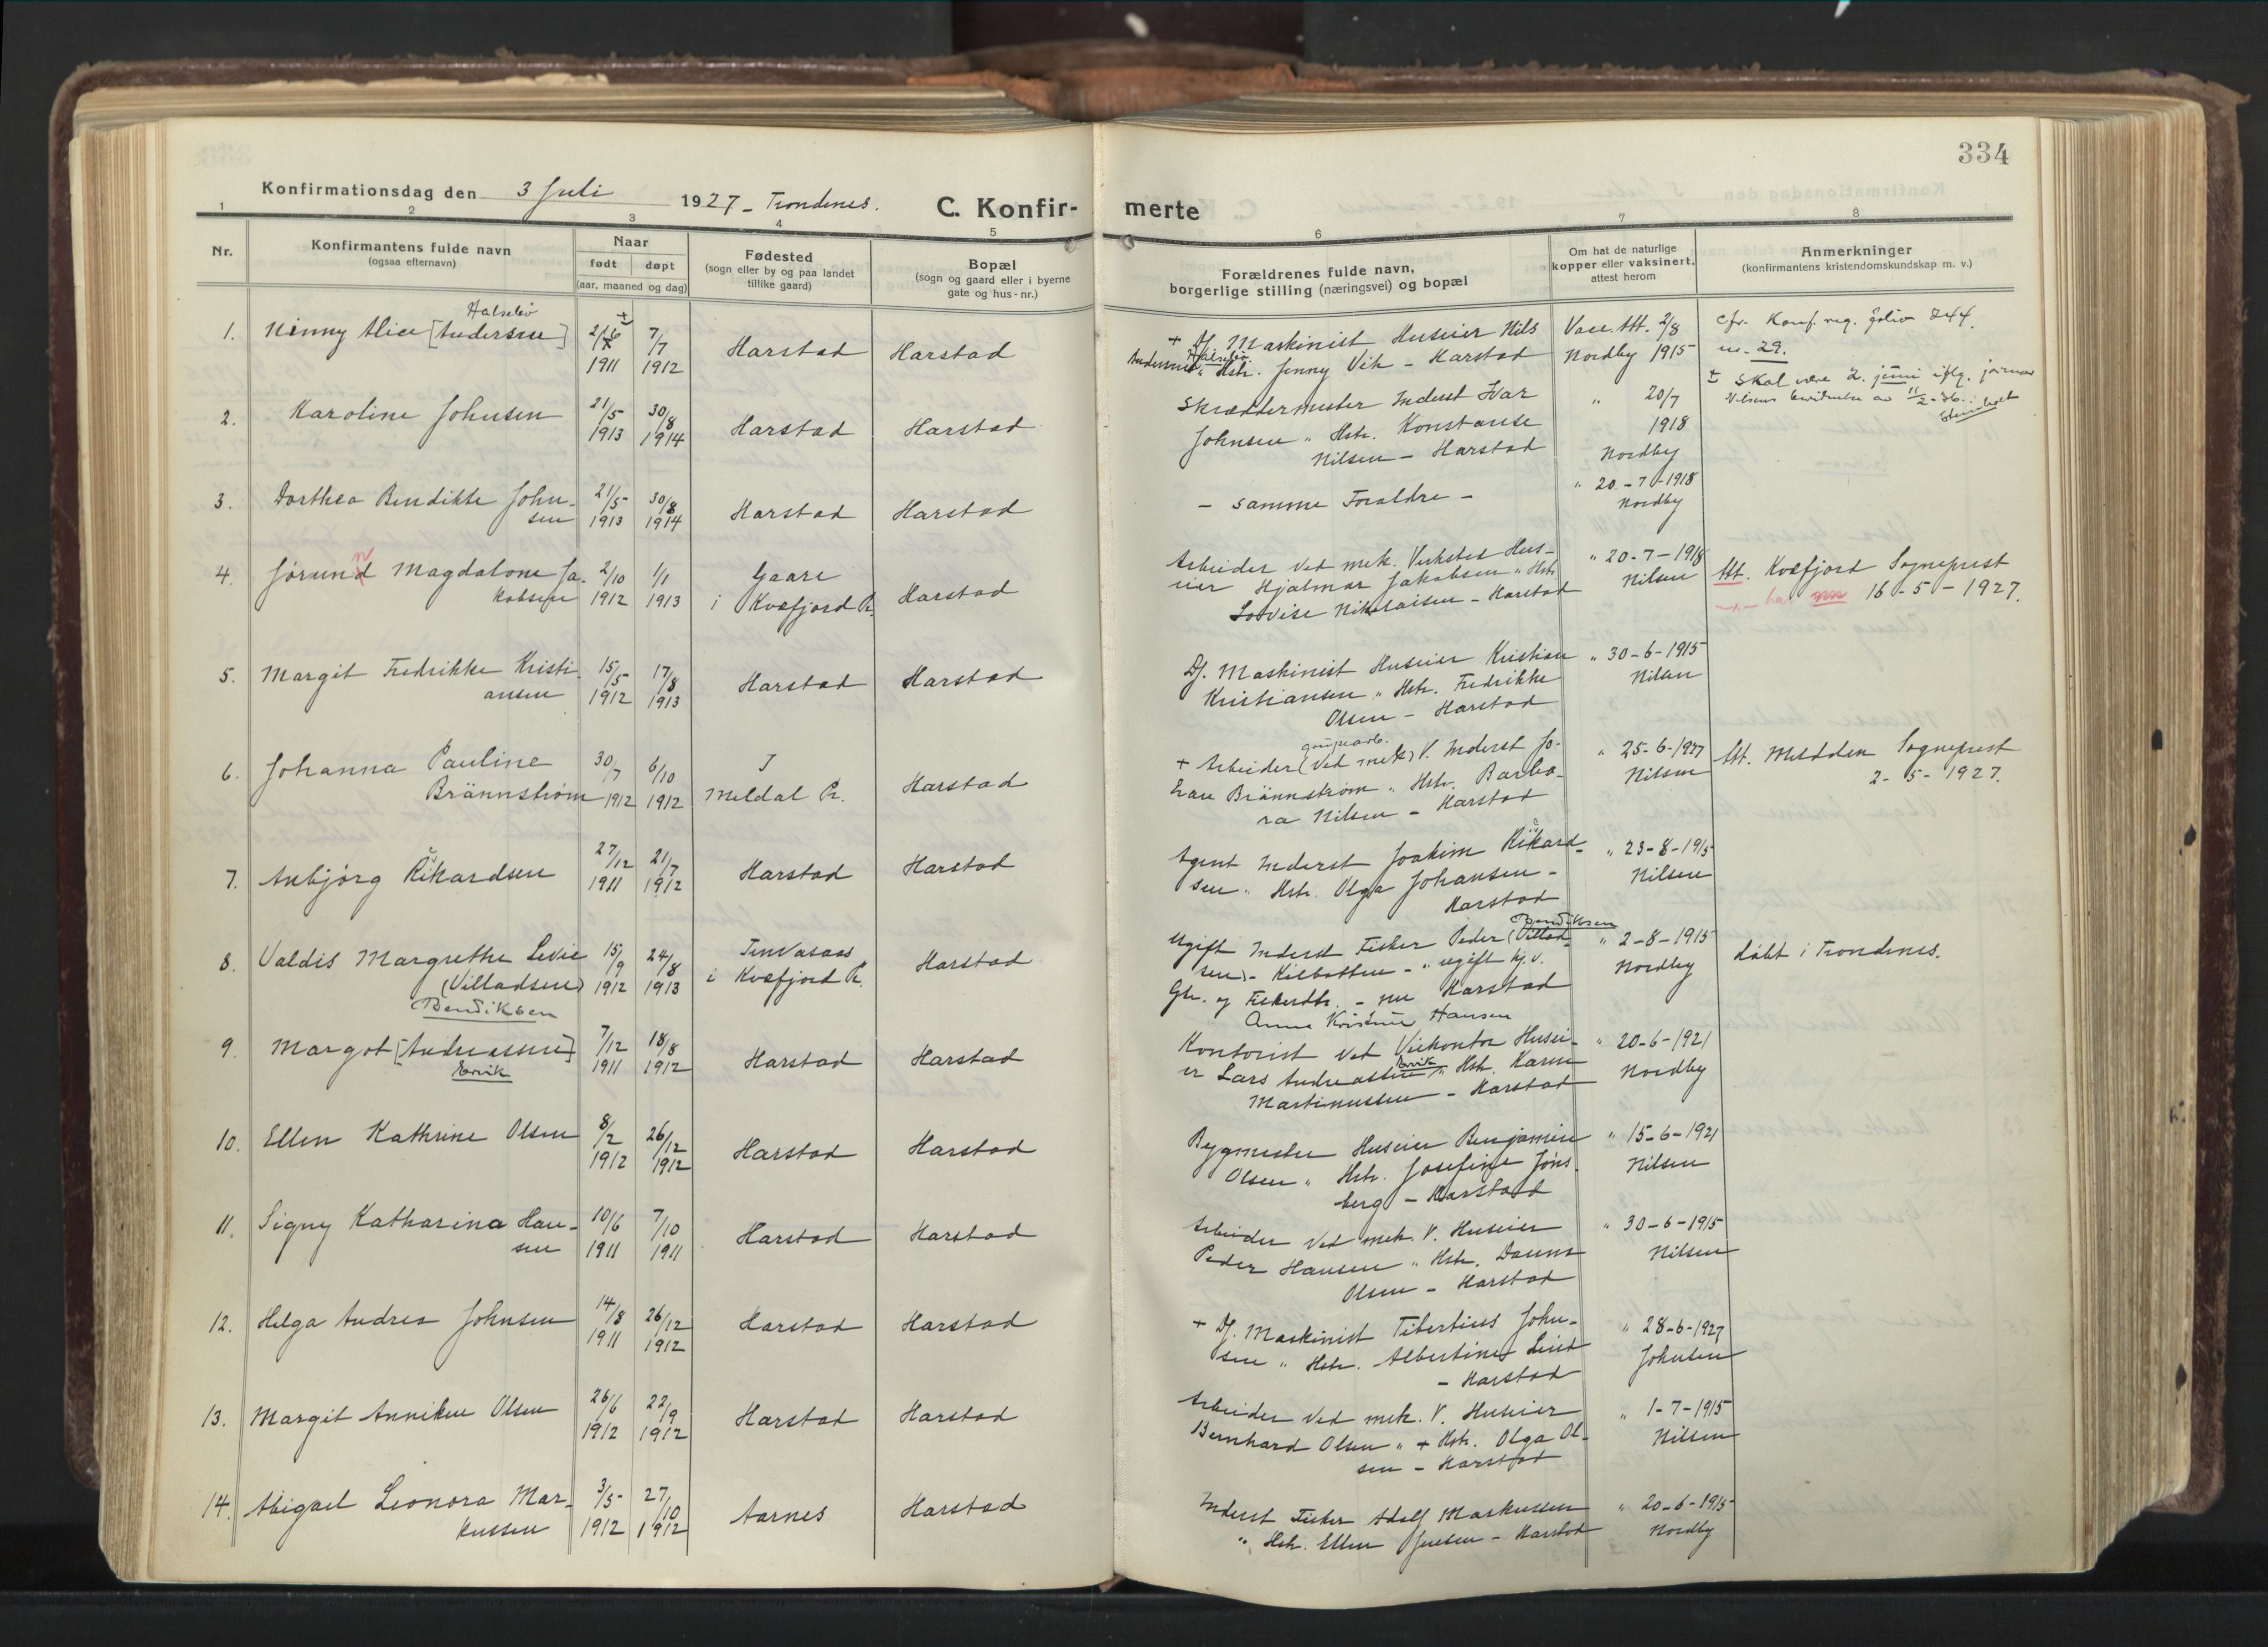 334
Konfirmationsdag den 3 Juli 1927 - Trondenes.
C. Konfir-
merte
1 2 3 4 5 6 7 8
Nr.
Konfirmantens fulde navn
(ogsaa efternavn)
Naar
født døpt
(aar, maaned og dag)
Fødested
(sogn eller by og paa landet
tillike gaard)
Bopæl
(sogn og gaard eller i byerne
gate og hus-nr.)
Forældrenes fulde navn,
borgerlige stilling (næringsvei) og bopæl
Om hat de naturlige
kopper eller vaksinert,
attest herom
Anmerkninger
(konfirmantens kristendomskundskap m. v.)
1. Ninny Alice [Andersen]
7/7
1911 1912
Harstad Harstad
+ Df. Maskinist Huseier Nils
Hstr. Jenny Vik - Harstad
Vacc. Att. 2/8
Nordby 1915
cfr. Konf. reg. folio 244.
nr. 29.
+ Skal være 2. juni iflg.
2. Karoline Johnsen
21/5 30/8
1913 1914
Harstad Harstad
Skræddermester Inderst Ivar
Johnsen " Hstr. Konstanse
Nilsen - Harstad
" 20/7
1918
Nordby
3. Dorthea Bendikte John-
sen
21/5 30/8
1913 1914
Harstad Harstad
- samme Foraldre -
" 20-7-1918
Nordby
4. Jørund Magdalone Ja-
kobsen
2/10 1/1
1912 1913
Gaare
i Kvæfjord Pr.
Harstad
Arbeider ved mek. Verksted Hus-
eier Hjalmar Jakobsen " Hstr
Lovise Nikolaisen - Harstad
" 20-7-1918
Nilsen
Att. Kvæfjord Sogneprest
16-5-1927.
5. Margit Fredrikke Kristi-
ansen
15/5 17/8
1912 1913
Harstad Harstad
Df. Maskinist Huseier Kristian
Kristiansen " Hstr. Fredrikke
Olsen - Harstad
" 30-6-1915
Nilsen
6. Johanna Pauline
Brännstrøm
30/7 6/10
1912 1912
I
Meldal Pr.
Harstad
grupearb.
+ Arbeider (ved mek) V. Inderst Jo-
Brännstrøm " Hstr. Barba-
ra Nilsen - Harstad
" 25-6-1927
Nilsen
Att. Meldalen Sogneprest
2-5-1927.
7. Anbjørg Rikardsen
27/12 21/7
1911 1912
Harstad Harstad
Agent Inderst Joakim Rikard-
sen " Hstr. Olga Johansen -
Harstad
" 23-8-1915
Nilsen
8. Valdis Margrethe Levie
(Villadsen)
Bendiksen
15/9 24/8
1912 1913
Tennvasaas
i Kvæfjord Pr.
Harstad
Bendiksen
Ugift Inderst Fisker Peder (Villad-
sen) - Kilbotten - " ugift hj. v.
Gbr. og Fiskerdtr. - nu Harstad
Anna Kristine Hansen
" 2-8-1915
Nordby
døbt i Trondenes.
9. Margot [Andreassen]
Ervik
7/12 18/8
1911 1912
Harstad Harstad
Kontorist ved Veikontor Husei-
Ervik
er Lars Andreassen " Hstr. Karen
Martinussen - Harstad
" 20-6-1921
Nordby
10. Ellen Kathrine Olsen
8/2 26/12
1912 1912
Harstad Harstad
Bygmester Huseier Benjamin
Olsen " Hstr. Josefine Jøns-
berg - Harstad
" 15-6-1921
Nilsen
11. Signy Katharina Han-
sen
10/6 7/10
1911 1911
Harstad Harstad
Arbeider ved mek. V. Huseier
Peder Hansen " Hstr. Danna
Olsen - Harstad
" 30-6-1915
Nilsen
12. Helga Andrea Johnsen
14/8 26/12
1911 1912
Harstad Harstad
+ Df. Maskinist Tibertius John-
sen " Hstr. Albertine Lind
- Harstad
" 28-6-1927
Johnsen
13. Margit Anniken Olsen
26/6 22/9
1912 1912
Harstad Harstad
Arbeider ved mek. V. Huseier
Bernhard Olsen " + Hstr. Olga Ol-
sen - Harstad
" 1-7-1915
Nilsen
14. Abigael Leonora Mar-
kussen
3/5 27/10
1912 1912
Aarnes Harstad
Inderst Fisker Adolf Markussen
" Hstr. Ellen Jensen - Harstad
" 20-6-1915
Nordby